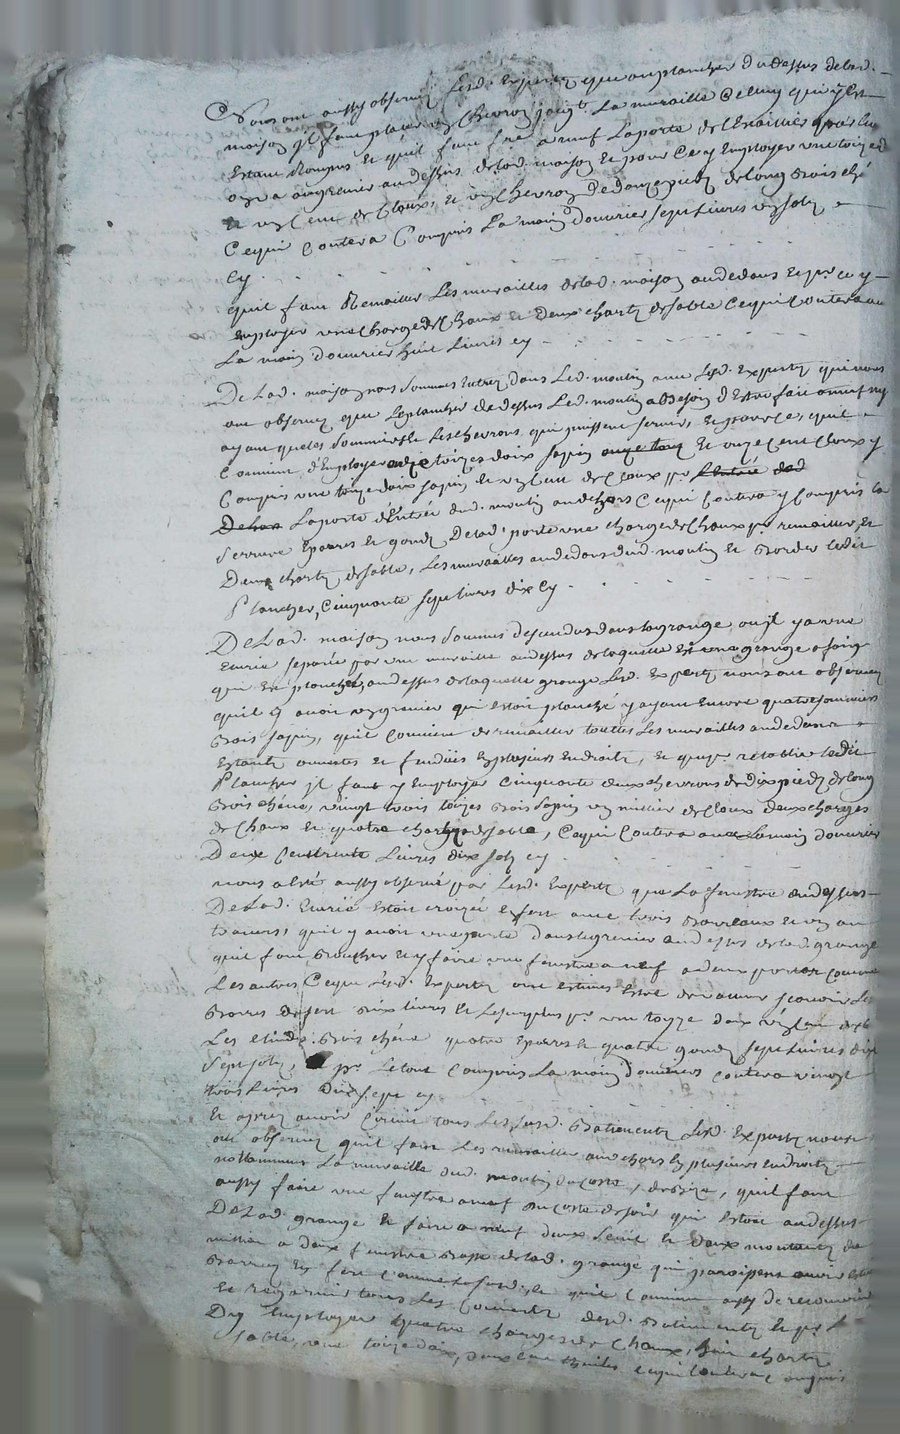 Nous ont aussy observé lesd. Experts que au plancher du dessus delad.
maison il faut placer un chevron joig.t La muraille Celluy qui y est
Estant Rompus et qu'il faut faire a neuf La porte de l'Escallier par
au grenier au dessus delad. maison Et pour Ce y Employer une toize
un cent de Cloux, et un chevron de douze pieds de long bois chêne
Ce qui Coutera Compris La main d'ouvrier sept Livres sols
Cy
qu'il faut Remailler Les murailles delad. maison au dedans Et pr. ce y
Employer une Charge de Chaux et deux chartz de sable Ce qui Coutera avec
La main d'ouvrier huit Livres cy
De Lad. maison nous sommes Entrez dans Led. moulin avec Lesd. Experts qui nous
ont observez que Le plancher de dessus Led. moulin a Besoin d'Estre fait a neuf n'y
ayant que les sommiers et Les chevrons qui puissent servir, Et pour ce, qu'il
Convient d'Employer toizes bois sapin Et onze Cent Cloux y
Compris une toize bois sapin Et un Cent de Cloux pr.
La porte d'Entrée dud. moulin au dehors Ce qui Coutera y Compris La
Serrure Eparres Et gonds De Lad. porte une charge de Chaux pr. remailler, Et
Deux chartz de sable, Les murailles au dedans dud. moulin Et Border Ledit
Plancher, Cinquante sept livres dix Cy
De Lad. maison nous sommes descendus dans la grange, ou il y a une
Ecurie separée par une muraille au dessus de laquelle Est une grange a foing
qui Est planchée, au dessus de laquelle grange Lesd. Experts nous ont observez
qu'il y avoit un grenier qui estoit planché y ayant Encore quatre sommiers
Bois sapin, qu'il Convient de remailler touttes Les murailles au dedans
Estants ouvertes et fendües En plusieurs Endroits, Et que pr. rétablir Ledit
Plancher il faut y Employer Cinquante deux chevrons de dix pieds de long
Bois chêne, vingt trois toizes Bois sapin un millier de Cloux deux charges
de Chaux Et quatre chartz de sable, Ce qui Coutera avec La main d'ouvrier
Deux Cent trente Livres dix sols cy
nous a été aussy observé par Lesd. Experts que La fenestre au dessus
De Lad. Ecurie Estoit croizée de fert avec trois Barreaux et un au
travers, qu'il y avoit une porte dans le grenier au dessus delad. grange
qu'il faut Boucher Et y faire une fenestre a neuf a deux portes comme
Les autres Ce que Lesd. Experts ont estimés Estre de valleur scavoir Les
Barres de fert six livres Et Le surplus pr. une toyze bois
Bois chêne quatre Eparres Et quatre gonds sept Livres dix
Sept sols, pr. Le tout Compris La main d'ouvriers Coutera vingt
trois Livres Dix sept cy
Et aprez avoir Couru tous Les susd. Batiments Lesd. Experts nous
ont observez qu'il faut Les remailler au dehors En plusieurs Endroits
nottamment La muraille dud. moulin du Costé de Bize, qu'il faut
aussy faire une fenestre a neuf du Costé de soir qui estoit au dessus
De Lad. grange Et faire a neuf deux Seüil Et deux montants de
a deux fenestre Basse delad. grange qui paroissent avoir esté
Barrez En fert Comme Le susd., Et qu'il Convient aussy de recouvrir
Et regarnir tous Les Couverts desd. Batiments Et pr.
D'y Employer quatre charges de Chaux, huit chartz
Sable, une toize bois, deux cent thuiles Ce qui Coutera Compris